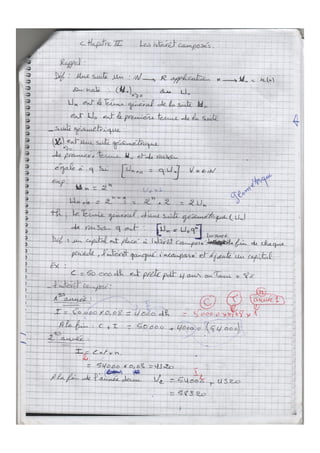 Chapitre III Les intérêt composés.
Rappel:
Déf: Une suite Un : N → R application n → Un = u(n)
on note : (Un)n≥0 ou Un
Un est le terme général de la suite Un
est U0 est le premier terme de la suite
_ suite géométrique
(Un) est une suite géométrique
de premier terme U0 et de raison
égale à q si [Un+1 = q Un] ∀n∈N
géométrique
Exp:
Un = 2^n
Un+1 = 2^n+1 = 2^n . 2 = 2 Un
Th: Le terme général d'une suite géométrique (Un)
de raison q est [Un = U0 q^n]
Déf: un capital est placé à intérêt composé la fin de chaque
période, l'intérêt et ajouté au capital.
Ex:
C = 50 000 dh est prêté pdt 4 ans au Taux = 8%
_ Intérêt composé:
1° année: C T année 1
I = 50000 x 0,08 = 4000 dh = 50000 x 0,08 x 1
A la fin : C + I = 50 000 + 4000 = (54 000)
2° année:
I2 = C x t x n
= 54000 x 0,08 = 4320
A la fin de l'année V2 = 54000 + 4320
= 58320